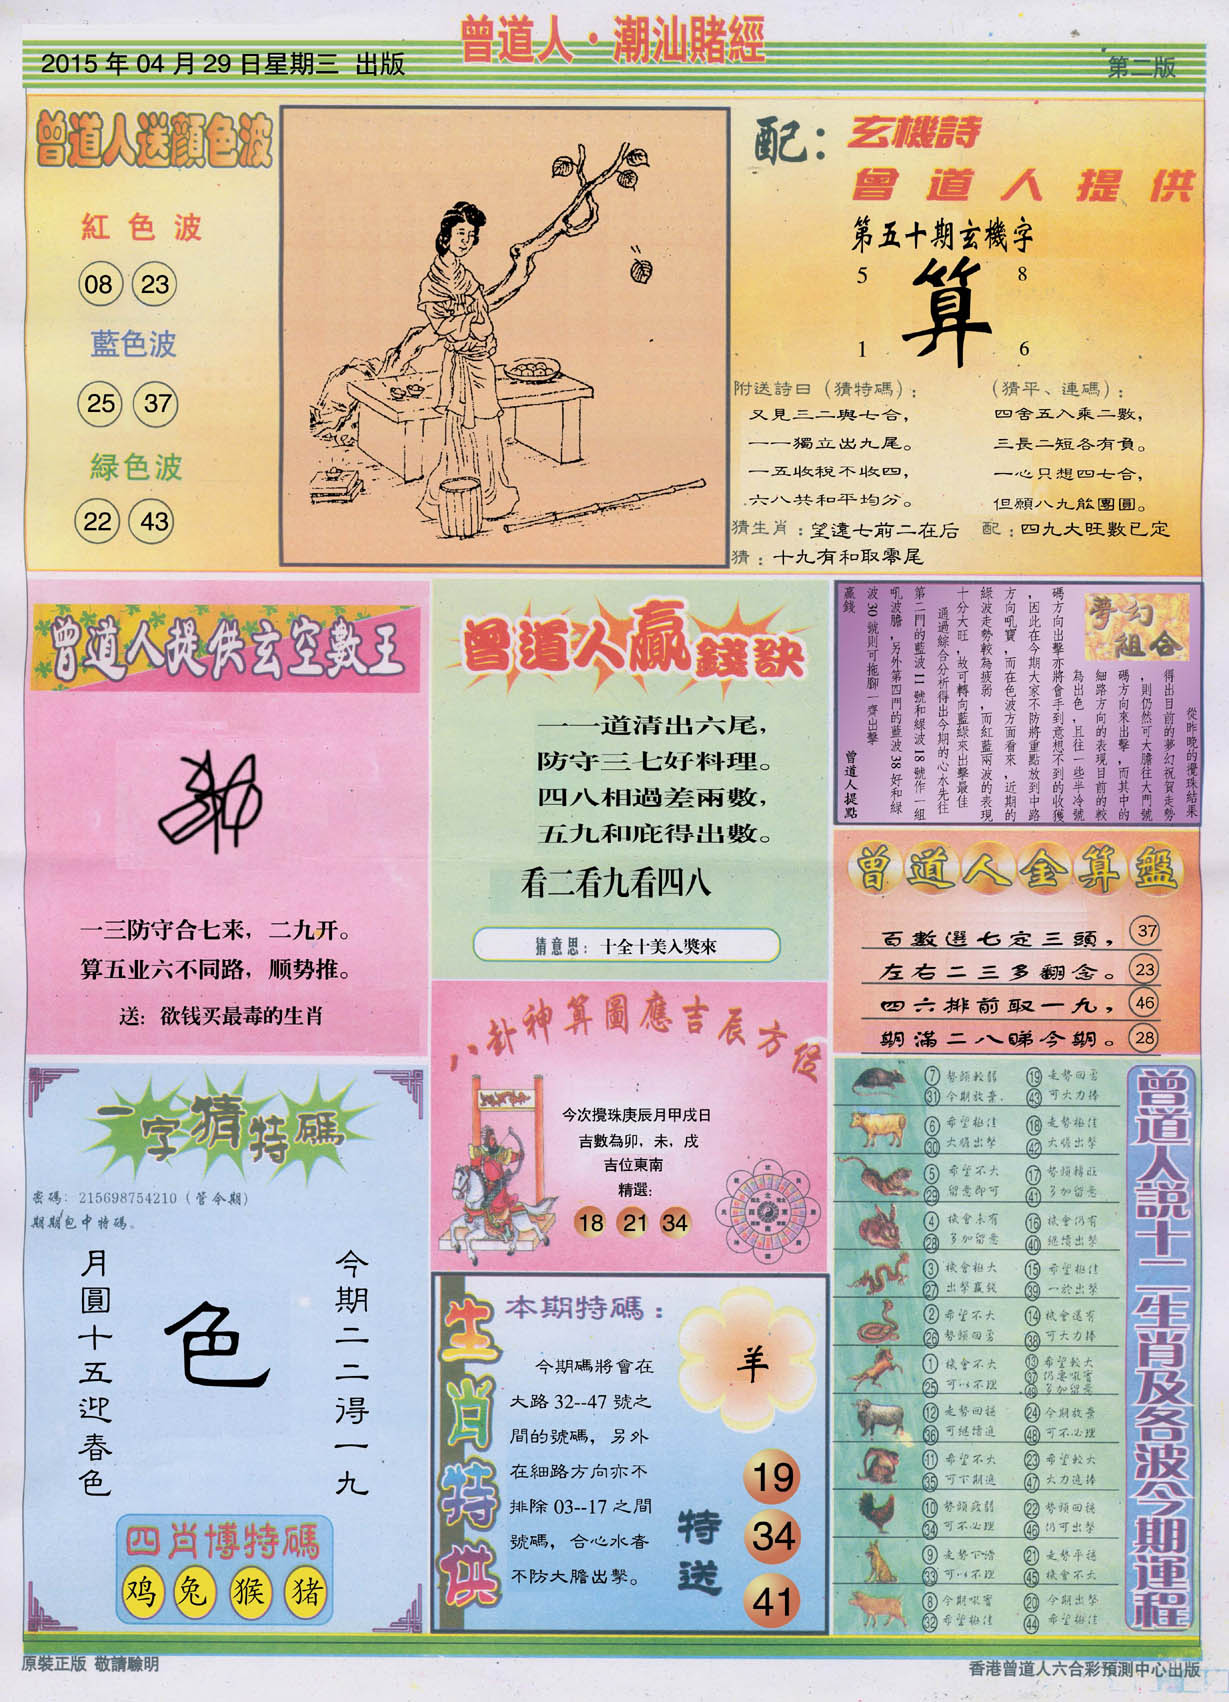 曾道人·潮汕賭經
2015 年 04 月 29 日星期三 出版
第二版
曾道人送顏色波
紅色波
08 23
藍色波
25 37
緑色波
22 43
配：玄機詩
曾道人提供
第五十期玄機字
5 8
算
1 6
附送詩曰（猜特碼）：
又見三二與七合，
一一獨立出九尾。
一五收稅不收四，
六八共和平均分。
（猜平、連碼）：
四舍五入乘二數，
三長二短各有負。
一心只想四七合，
但願八九能團圓。
猜生肖：望遠七前二在后
配：四九大旺數已定
猜：十九有和取零尾
曾道人提供玄空數王
一三防守合七来，二九开。
算五业六不同路，顺势推。
送：欲钱买最毒的生肖
曾道人贏錢訣
一一道清出六尾，
防守三七好料理。
四八相過差兩數，
五九和庇得出數。
看二看九看四八
猜意思：十全十美入獎來
夢幻組合
從昨晚的攪珠結果
得出目前的夢幻祝賀走勢
，則仍然可大膽往大門號
碼方向來出擊，而其中的
細路方向的表現目前的較
為出色，且往一些半冷號
碼方向出擊亦將會手到意想不到的收獲
，因此在今期大家不防將重點放到中路
方向吼寶，而在色波方面看來，近期的
綠波走勢較為疲弱，而紅藍兩波的表現
十分大旺，故可轉向藍綠來出擊最佳
通過綜合分析得出今期的心水先往
第二門的藍波 11 號和綠波 18 號作一組
吼波膽，另外第四門的藍波 38 好和綠
波 30 號則可拖腳一齊出擊
贏錢
曾道人提點
曾道人金算盤
百數選七定三頭， 37
左右二三多翻念。 23
四六排前取一九， 46
期滿二八睇今期。 28
一字猜特碼
密碼：215698754210（管今期）
期期包中特碼。
今期二二得一九
色
月圓十五迎春色
四肖博特碼
鸡 兔 猴 猪
八卦神算圖應吉辰方位
今次攪珠庚辰月甲戌日
吉數為卯，未，戌
吉位東南
精選：
18 21 34
生肖特供
本期特碼：
今期碼將會在
大路 32--47 號之
間的號碼，另外
在細路方向亦不
排除 03--17 之間
號碼，合心水者
不防大膽出擊。
羊
特送
19
34
41
曾道人說十二生肖及各波今期運程
7 勢頭較弱 19 走勢回勇
31 今期放棄 43 可大力捧
6 希望極佳 18 走勢極佳
30 大膽出擊 42 大膽出擊
5 希望不大 17 勢頭轉旺
29 留意即可 41 多加留意
4 機會未有 16 機會仍有
28 多加留意 40 繼續出擊
3 機會極大 15 希望極佳
27 出擊贏錢 39 一於出擊
2 希望不大 14 機會還有
26 勢頭回勇 38 可大力捧
1 機會不大 13 希望較大
25 可以不理 37 仍要吼實
49 多加留意
12 走勢回穩 24 今期放棄
36 可繼續追 48 可不必理
11 希望不大 23 希望較大
35 可下期追 47 大力追捧
10 勢頭疲弱 22 勢頭回穩
34 可不必理 46 仍可出擊
9 走勢下滑 21 走勢平穩
33 可以不理 45 機會不大
8 今期吼實 20 今期出擊
32 希望極佳 44 希望極佳
原裝正版 敬請驗明
香港曾道人六合彩預測中心出版